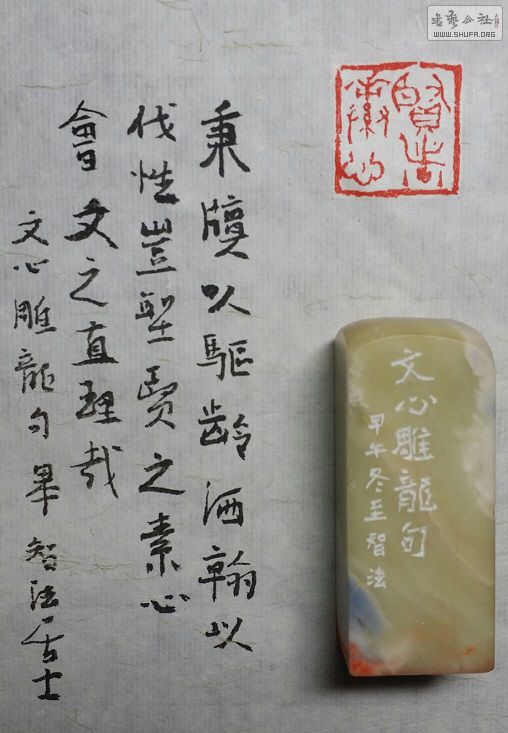 秉牘以驅齡洒翰以
伐性豈聖賢之素心
會文之直理哉
文心雕龍句畢智法居士
文心雕龍句
甲午冬至智法
书艺公社
WWW.SHUFA.ORG